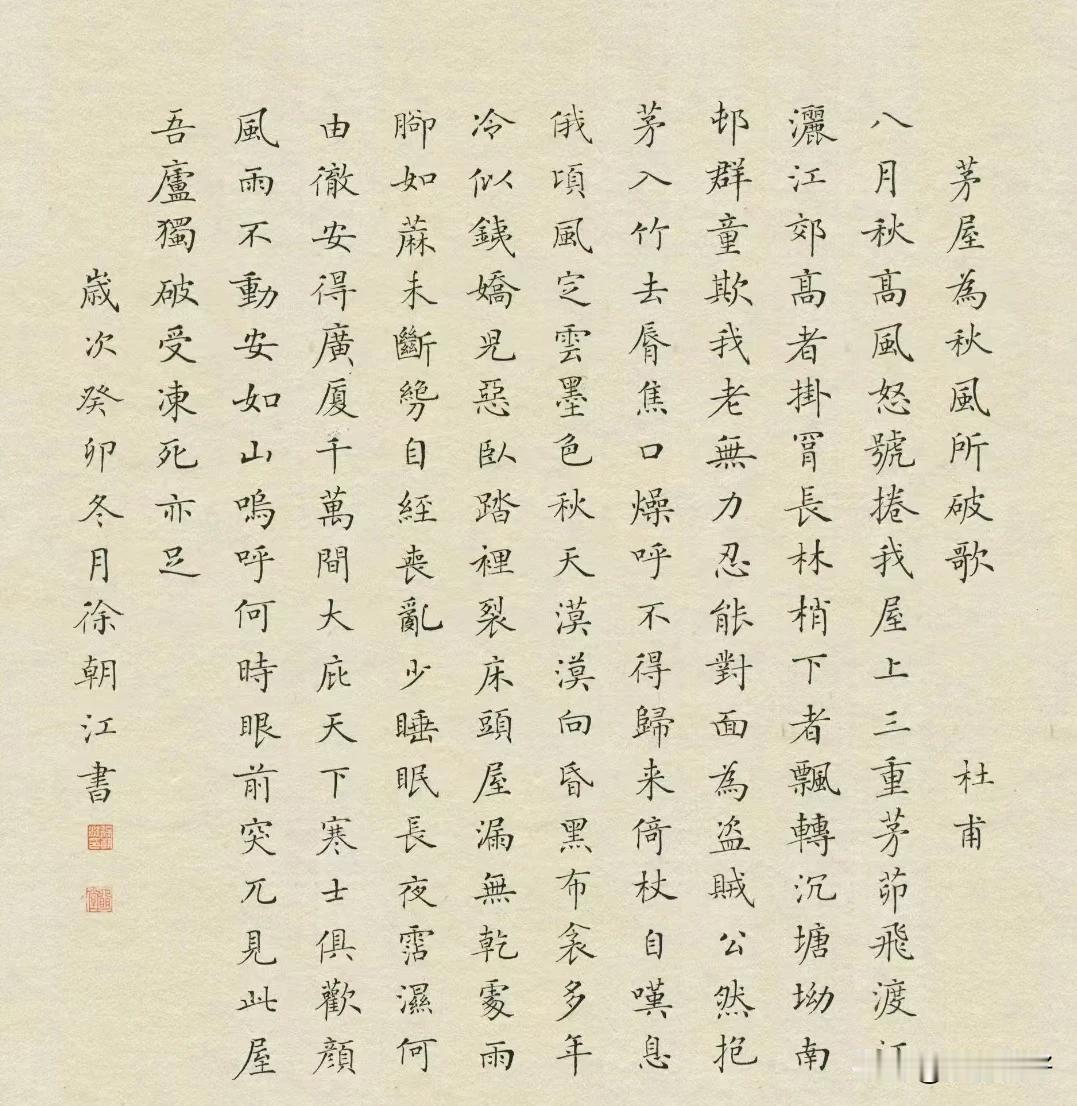 茅屋為秋風所破歌 杜甫
八月秋髙風怒號捲我屋上三重茅茆飛渡江
灑江郊髙者掛罥長林梢下者飄轉沉塘坳南
邨群童欺我老無力忍能對面為盗賊公然抱
茅入竹去脣焦口燥呼不得歸来倚杖自嘆息
俄頃風定雲墨色秋天漠漠向昏黑布衾多年
冷似銕嬌兒惡臥踏裡裂床頭屋漏無乾處雨
腳如蔴未斷絶自經喪亂少睡眠長夜霑濕何
由徹安得廣厦千萬間大庇天下寒士俱歡顔
風雨不動安如山嗚呼何時眼前突兀見此屋
吾廬獨破受凍死亦足
歲次癸卯冬月徐朝江書